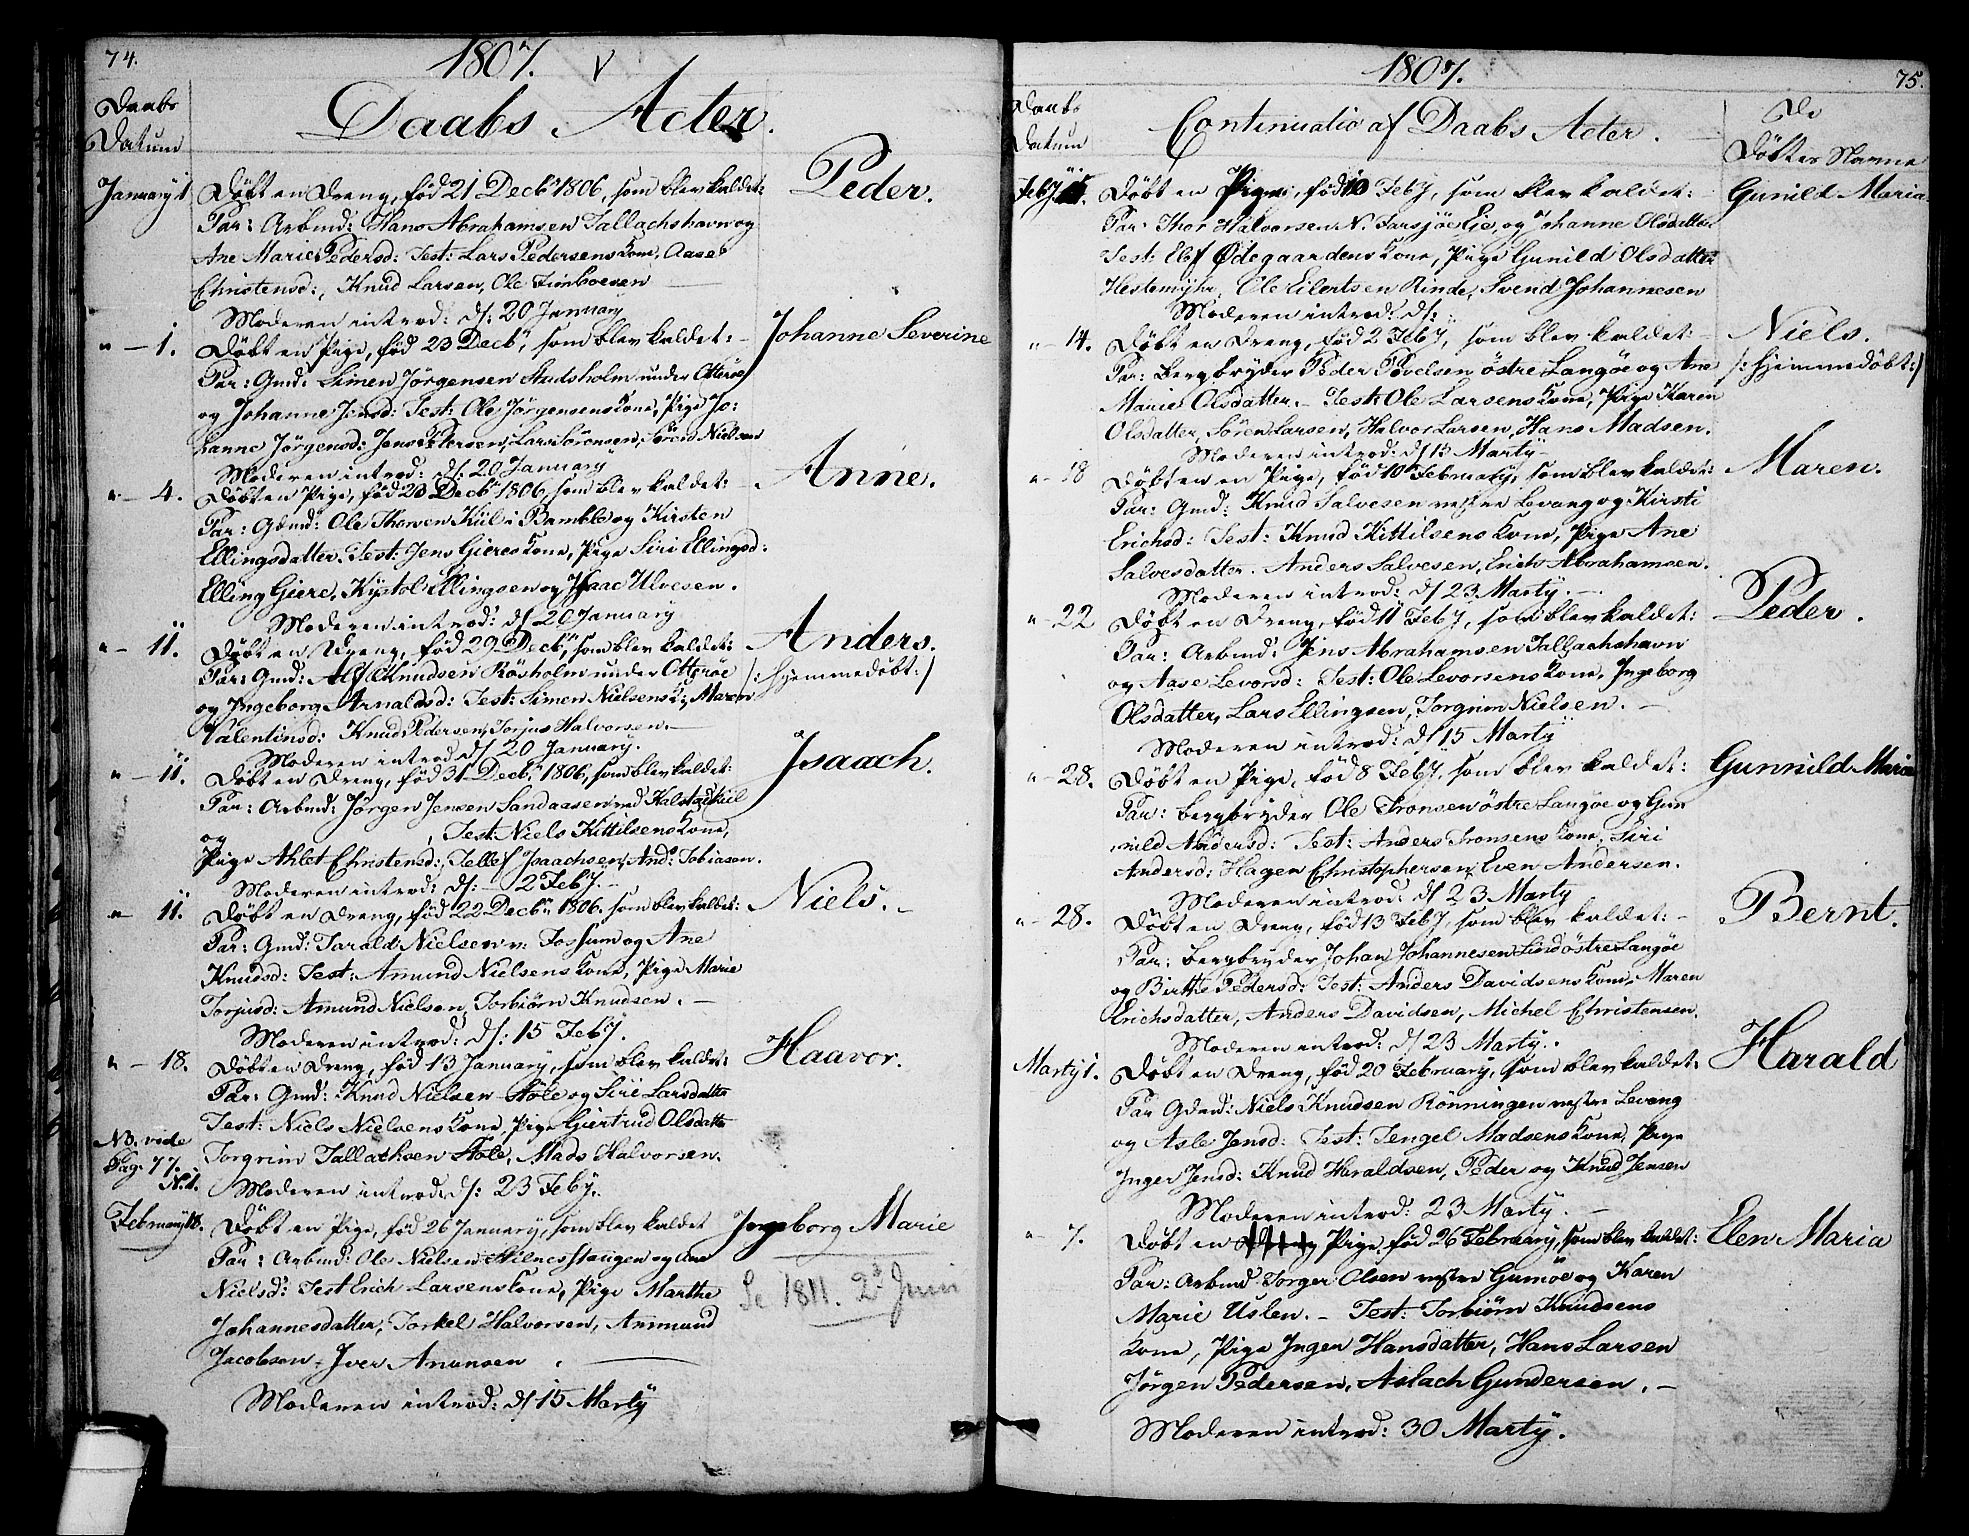 74.
1807.
Daabs
Datum
Daabs Acter.
January 1
Döbt en Dreng, föd 21 Decbr 1806, som blev kaldet:
Peder.
Par: Arbmd: Hans Abrahamsen Tallachshavn og
Ane Marie Pedersd: Test: Lars Pedersens Kone, Aase
Christensd:, Knud Larsen, Ole
Moderen introd: d/: 20 January
" — 1.
Döbt en Pige, föd 23 Decbr, som blev kaldet: —
Johanne Severine
Par: Gmd: Simen Jörgensen Stadsholm under Otteröe
og Johanne Jensd: Test: Ole Jörgensens Kone, Pige Jo:
hanne Jörgensd: Jens Pedersen, Lars Sörensen, Sören Nielsen
Moderen introd: d/: 20 January
" — 4.
Döbt en Pige, föd 20 Decbr 1806, som blev kaldet: —
Anne.
Par: Gdmd: Ole Thorsen Kiil i Bamble og Kirsten
Ellingsdatter. Test: Jens Gieres Kone, Pige Siri Ellingsd:
Elling Giere, Kystol Ellingsen og Isaac Ulvesen.
Moderen introd: d/ 20 January
" — 11.
Döbt en Dreng, föd 29 Decbr, som blev kaldet:
Anders.
Par: Gmd: Alf Knudsen Rösholm under Otteröe
/: hjemmedöbt :/
og Ingeborg Arnaldsd: Test: Simen Nielsens K: Maren
Valentinsd: Knud Pedersen, Torjus Halvorsen. —
Moderen introd d/ 20 January.
" — 11.
Döbt en Dreng, föd 31 Decbr 1806, som blev kaldet:
Isaach.
Par: Arbmd: Jörgen Jensen Sandaasen ved Kalstadkiil
og , Test: Niels Kittilsens Kone,
Pige Ahlet Christensd:, Tellef Isaachsen, And: Tobiasen.
Moderen introd: d/: — 2 Feby. —
" — 11.
Döbt en Dreng, föd 22 Decbr 1806. som blev kaldet:
Niels. —
Par: Gmd: Tarald Nielsen v: Fossum og Ane
Knudsd: Test: Amund Nielsens Kone, Pige Marie
Torjusd: Amund Nielsen, Torbiörn Knudsen. —
Moderen introd: d/: 15 Feby.
" — 18.
Döbt en Dreng, föd 13 January, som blev kaldet:
Haavor.
Par: Gmd: Knud Nielsen Hole og Siri Larsdatter
Test: Niels Nielsens Kone, Pige Giertrud Olsdatter
Torgrim Tallachsen Hole, Mads Halvorsen.
NB. vide
Pag. 77.
N. 1.
Moderen introd: d/: 23 Feby.
February
Döbt en Pige, föd 26 January, som blev kaldet
Ingeborg Marie
Par: Arbmd: Ole Nielsen og Ane
Nielsd: Test Erich Larsens Kone, Pige Marthe
Se 1811. 2d Juni
Johannesdatter, Torkel Halvorsen, Ammund
Jacobsen, Iver Anunsen . —
Moderen introd: d/ 15 Marty
1807.
75.
Daabs
Datum
Continuatio af Daabs Acter.
De
Döbtes Navne
Feby.
Döbt en Pige, föd 10 Feby, som blev kaldet:
Gunild Maria
Par: Thor Halvorsen N. Farsjöe Eie, og Johanne Olsdatter
Test: Elef Ødegaardens Kone, Pige Gunild Olsdatter
Hestemyhr, Ole Eilertsen Rinde, Svend Johannesen
Moderen introd: d/:
" — 14.
Döbt en Dreng, föd 2 Feby, som blev kaldet: —
Niels.
Par: Bergbryder Peder Povelsen östre Langöe og Ane
/: hjemmedöbt :/
Marie Olsdatter. — Test: Ole Larsens Kone, Pige Karen
Olsdatter, Sören Larsen, Halvor Larsen, Hans Madsen.
Moderen introd: d/ 15 Marty
" — 18
Döbt en en Pige, föd 10 February, som blev kaldet:
Maren.
Par: Gmd: Knud Salvesen vestre Levang og Kirsti
Erichsd: Test: Knud Kittilsens Kone, Pige Ane
Salvesdatter. Anders Salvesen, Erich Abrahamsen.
Moderen introd: d/ 23 Marty. —
" — 22
Döbt en Dreng, föd 11 Feby, som blev kaldet:
Peder.
Par: Arbmd: Jens Abrahamsen Tallachshavn
og Aase Levorsd: Test: Ole Levorsens Kone, Ingeborg
Olsdatter, Lars Ellingsen, Torgrim Nielsen. —
Moderen introd: d/ 15 Marty
" — 28.
Döbt en Pige, föd 8 Feby, som blev kaldet:
Gunnild Maria
Par: Bergbryder Ole Tronsen östre Langöe og Gun
nild Andersd: Test: Anders Tronsens Kone, Siri
Andersd: Hagen Christophersen, Even Andersen.
Moderen introd: d/ 23 Marty
" — 28.
Döbt en Dreng, föd 13 Feby, som blev kaldet: —
Bernt.
Par: Bergbryder Johan Johannesen östre Langöe
og Birthe Pedersd: Test: Anders Davidsens Kone, Maren
Erichsdatter, Anders Davidsen, Michel Christensen.
Moderen introd: d/ 23 Marty.
Marty 1.
Döbt en Dreng, föd 20 February, som blev kaldet:
Harald
Par Gdmd: Niels Knudsen Rönningen vestre Levang
og Asle Jensd: Test: Tengel Madsens Kone, Pige
Inger Jensd: Knud Haraldsen, Peder og Knud Jensen
Moderen introd: 23 Marty. —
" — 7.
Döbt en Pige, föd 26 February, som blev kaldet:
Elen Maria
Par: Arbmd Torger Olsen vestre Gumöe og Karen
Marie Uslen. — Test: Torbiörn Knudsens
Kone, Pige Ingen Hansdatter, Hans Larsen
Jörgen Pedersen, Aslach Gundersen. —
Moderen introd: 30 Marty.